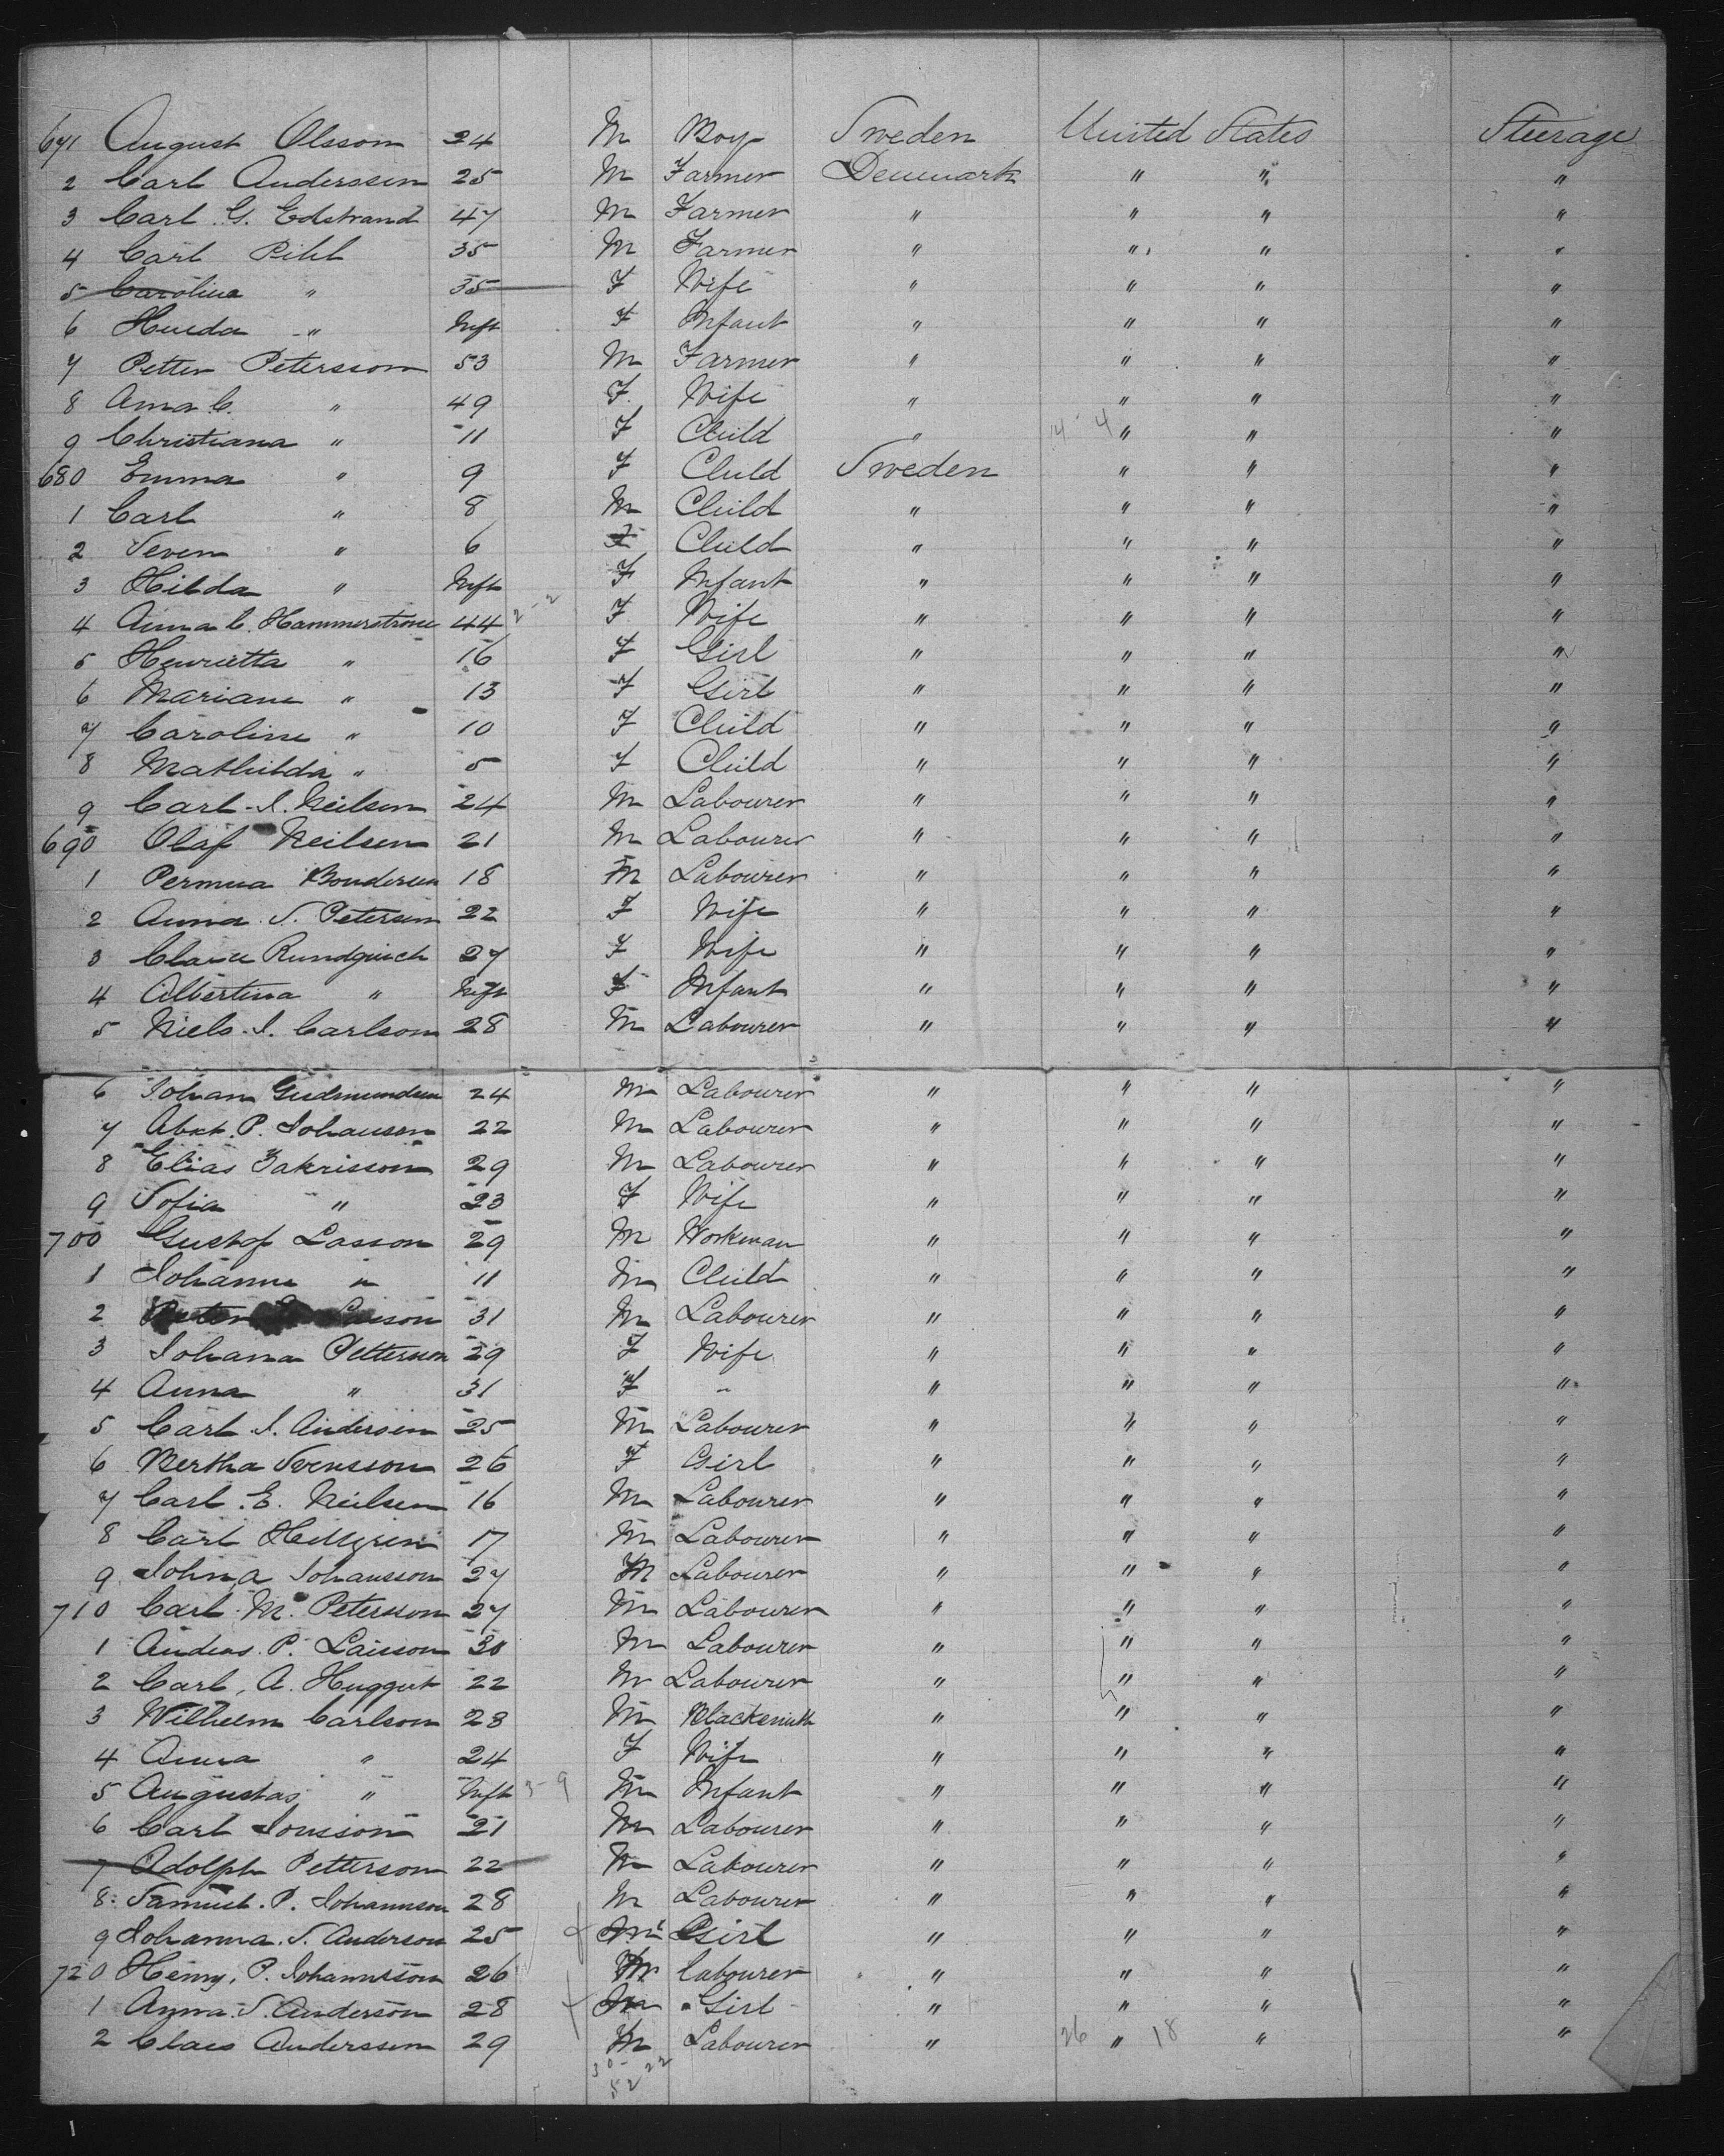 671 August Olsson 24 M Boy Sweden United States Steerage
2 Carl Anderssen 25 M Farmer Denmark " " "
3 Carl G. Edstrand 47 M Farmer " " " "
4 Carl Pihl 35 M Farmer " " " "
5 Carolina " 35 F Wife " " " "
6 Hulda " Inft F Infant " " " "
7 Petter Petersson 53 M Farmer " " " "
8 Anna C. " 49 F Wife " " " "
9 Christiana " 11 F Child " 14 4 " " "
680 Emma " 9 F Child Sweden " " "
1 Carl " 8 M Child " " " "
2 Seven " 6 Child " " " "
3 Hilda " Inft F Infant " " " "
4 Anna C. Hammerstrone 44 2-2 F Wife " " " "
5 Henrietta " 16 F Girl " " " "
6 Mariane " 13 F Girl " " " "
7 Caroline " 10 F Child " " " "
8 Mathilda " 5 F Child " " " "
9 Carl J. Neilsen 24 M Labourer " " " "
690 Olaf Neilsen 21 M Labourer " " " "
1 18 M Labourer " " " "
2 Anna S. Petersen 22 F Wife " " " "
3 Rundquich 27 F Wife " " " "
4 Albertina " Inft F Infant " " " "
5 Niels J. Carlson 28 M Labourer " " " "
6 Johan Gudmundsen 24 M Labourer " " " "
7 P. Johansen 22 M Labourer " " " "
8 Elias Zakrisson 29 M Labourer " " " "
9 Sofia " 23 F Wife " " " "
700 Gustof Lasson 29 M Workman " " " "
1 Johanne " 11 M Child " " " "
2 31 M Labourer " " " "
3 Johana Petterson 29 F Wife " " " "
4 Anna " 31 F " " " " "
5 Carl J. Andersen 25 M Labourer " " " "
6 Bertha Svensson 26 F Girl " " " "
7 Carl E. Neilsen 16 M Labourer " " " "
8 Carl Hellgren 17 M Labourer " " " "
9 John A Johansson 27 M Labourer " " " "
710 Carl M. Petersson 27 M Labourer " " " "
1 Andeas P. Larsson 30 M Labourer " " " "
2 Carl A. 22 M Labourer " " " "
3 Wilhelm Carlson 28 M Blacksmith " " " "
4 Anna " 24 F Wife " " " "
5 Augustas " Inft 3-9 M Infant " " " "
6 Carl Jonsson 21 M Labourer " " " "
7 Adolph Petterson 22 M Labourer " " " "
8 Samuel P. Johannson 28 M Labourer " " " "
9 Johanna S. Anderson 25 M Girl " " " "
720 Henry P. Johannsson 26 M labourer " " " "
1 Anna S. Anderson 28 M Girl " " " "
2 Claes Anderssen 29 M Labourer " 26 " 18 " "
30-22
52